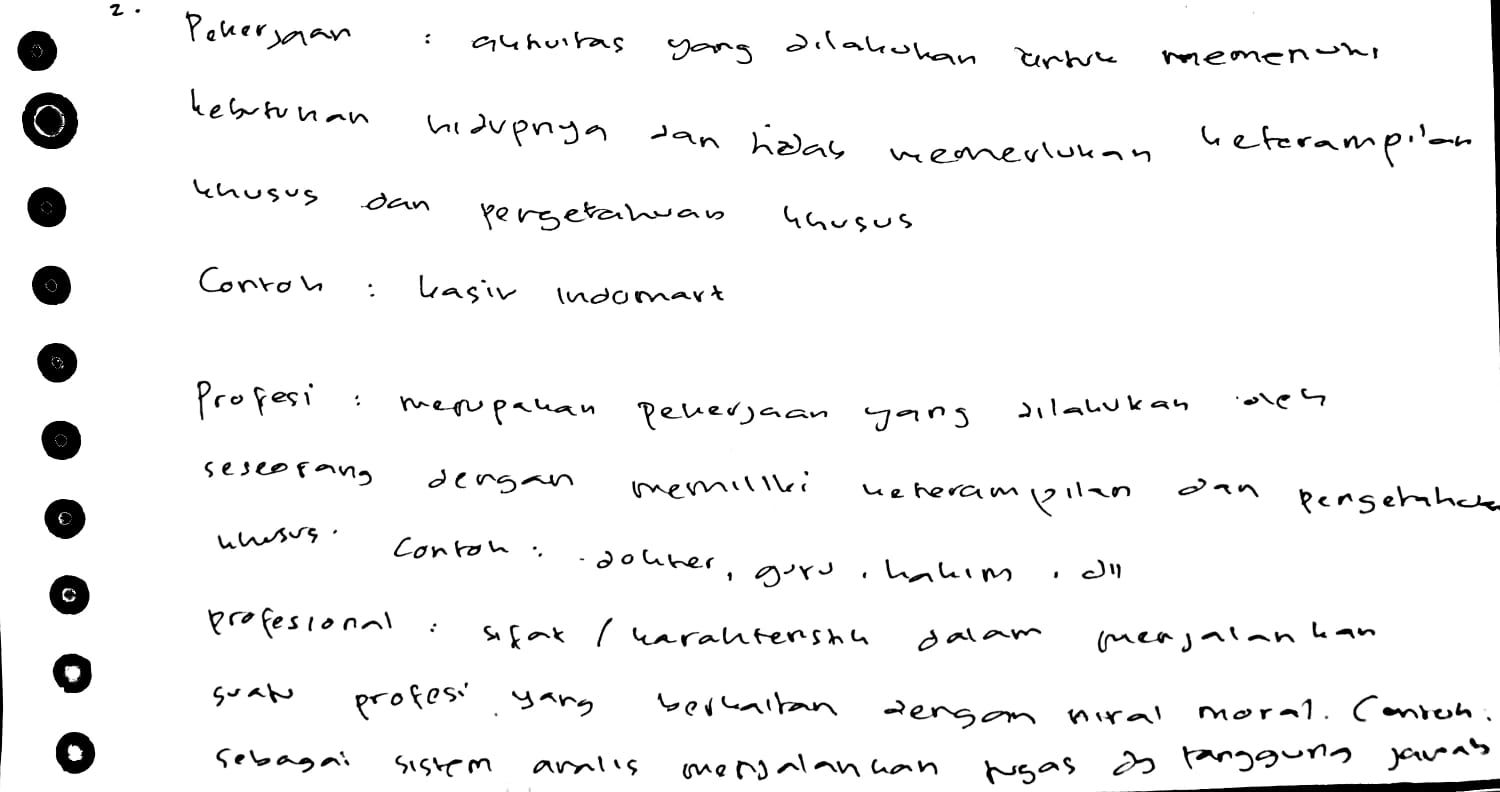 2.
Pekerjaan : aktivitas yang dilakukan untuk memenuhi
kebutuhan hidupnya dan tidak memerlukan keterampilan
khusus dan pengetahuan khusus
Contoh : kasir Indomart
Profesi : merupakan pekerjaan yang dilakukan oleh
seseorang dengan memiliki keterampilan dan pengetahuan
khusus. Contoh : dokter, guru, hakim, dll
profesional : sifat / karakteristik dalam menjalankan
suatu profesi yang berkaitan dengan nilai moral. Contoh :
sebagai sistem analis menjalankan tugas dg tanggung jawab